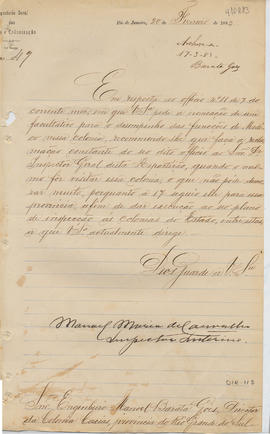 Inspectoria Geral
e Colonisação
Nº 47
Rio de Janeiro, 20 de Fevereiro de 1883
Archive-se
17-3-83
Barata Góes
Em resposta ao officio nº 11 de 7 do
corrente mez, em que V. Sª pede a nomeação de um
facultativo para o desempenho das funcções de Medi-
co nessa colonia, recommendo-lhe que faça a recla-
mação constante do seu dito officio ao Snr. Dr.
Inspector Geral desta Repartição, quando o mes-
mo for visitar essa colonia, o que não pode demo-
rar muito, porquanto á 17 seguio elle para essa
provincia, afim de dar execução ao seu plano
de inspecção ás colonias do Estado, entre ellas
a que V. Sª actualmente dirige.
Deos Guarde a V. Sª
Manuel Maria de Carvalho
Inspector Interino.
Snr. Engenheiro Manoel Barata Góes, Director
da Colonia Caxias, provincia do Rio Grande do Sul